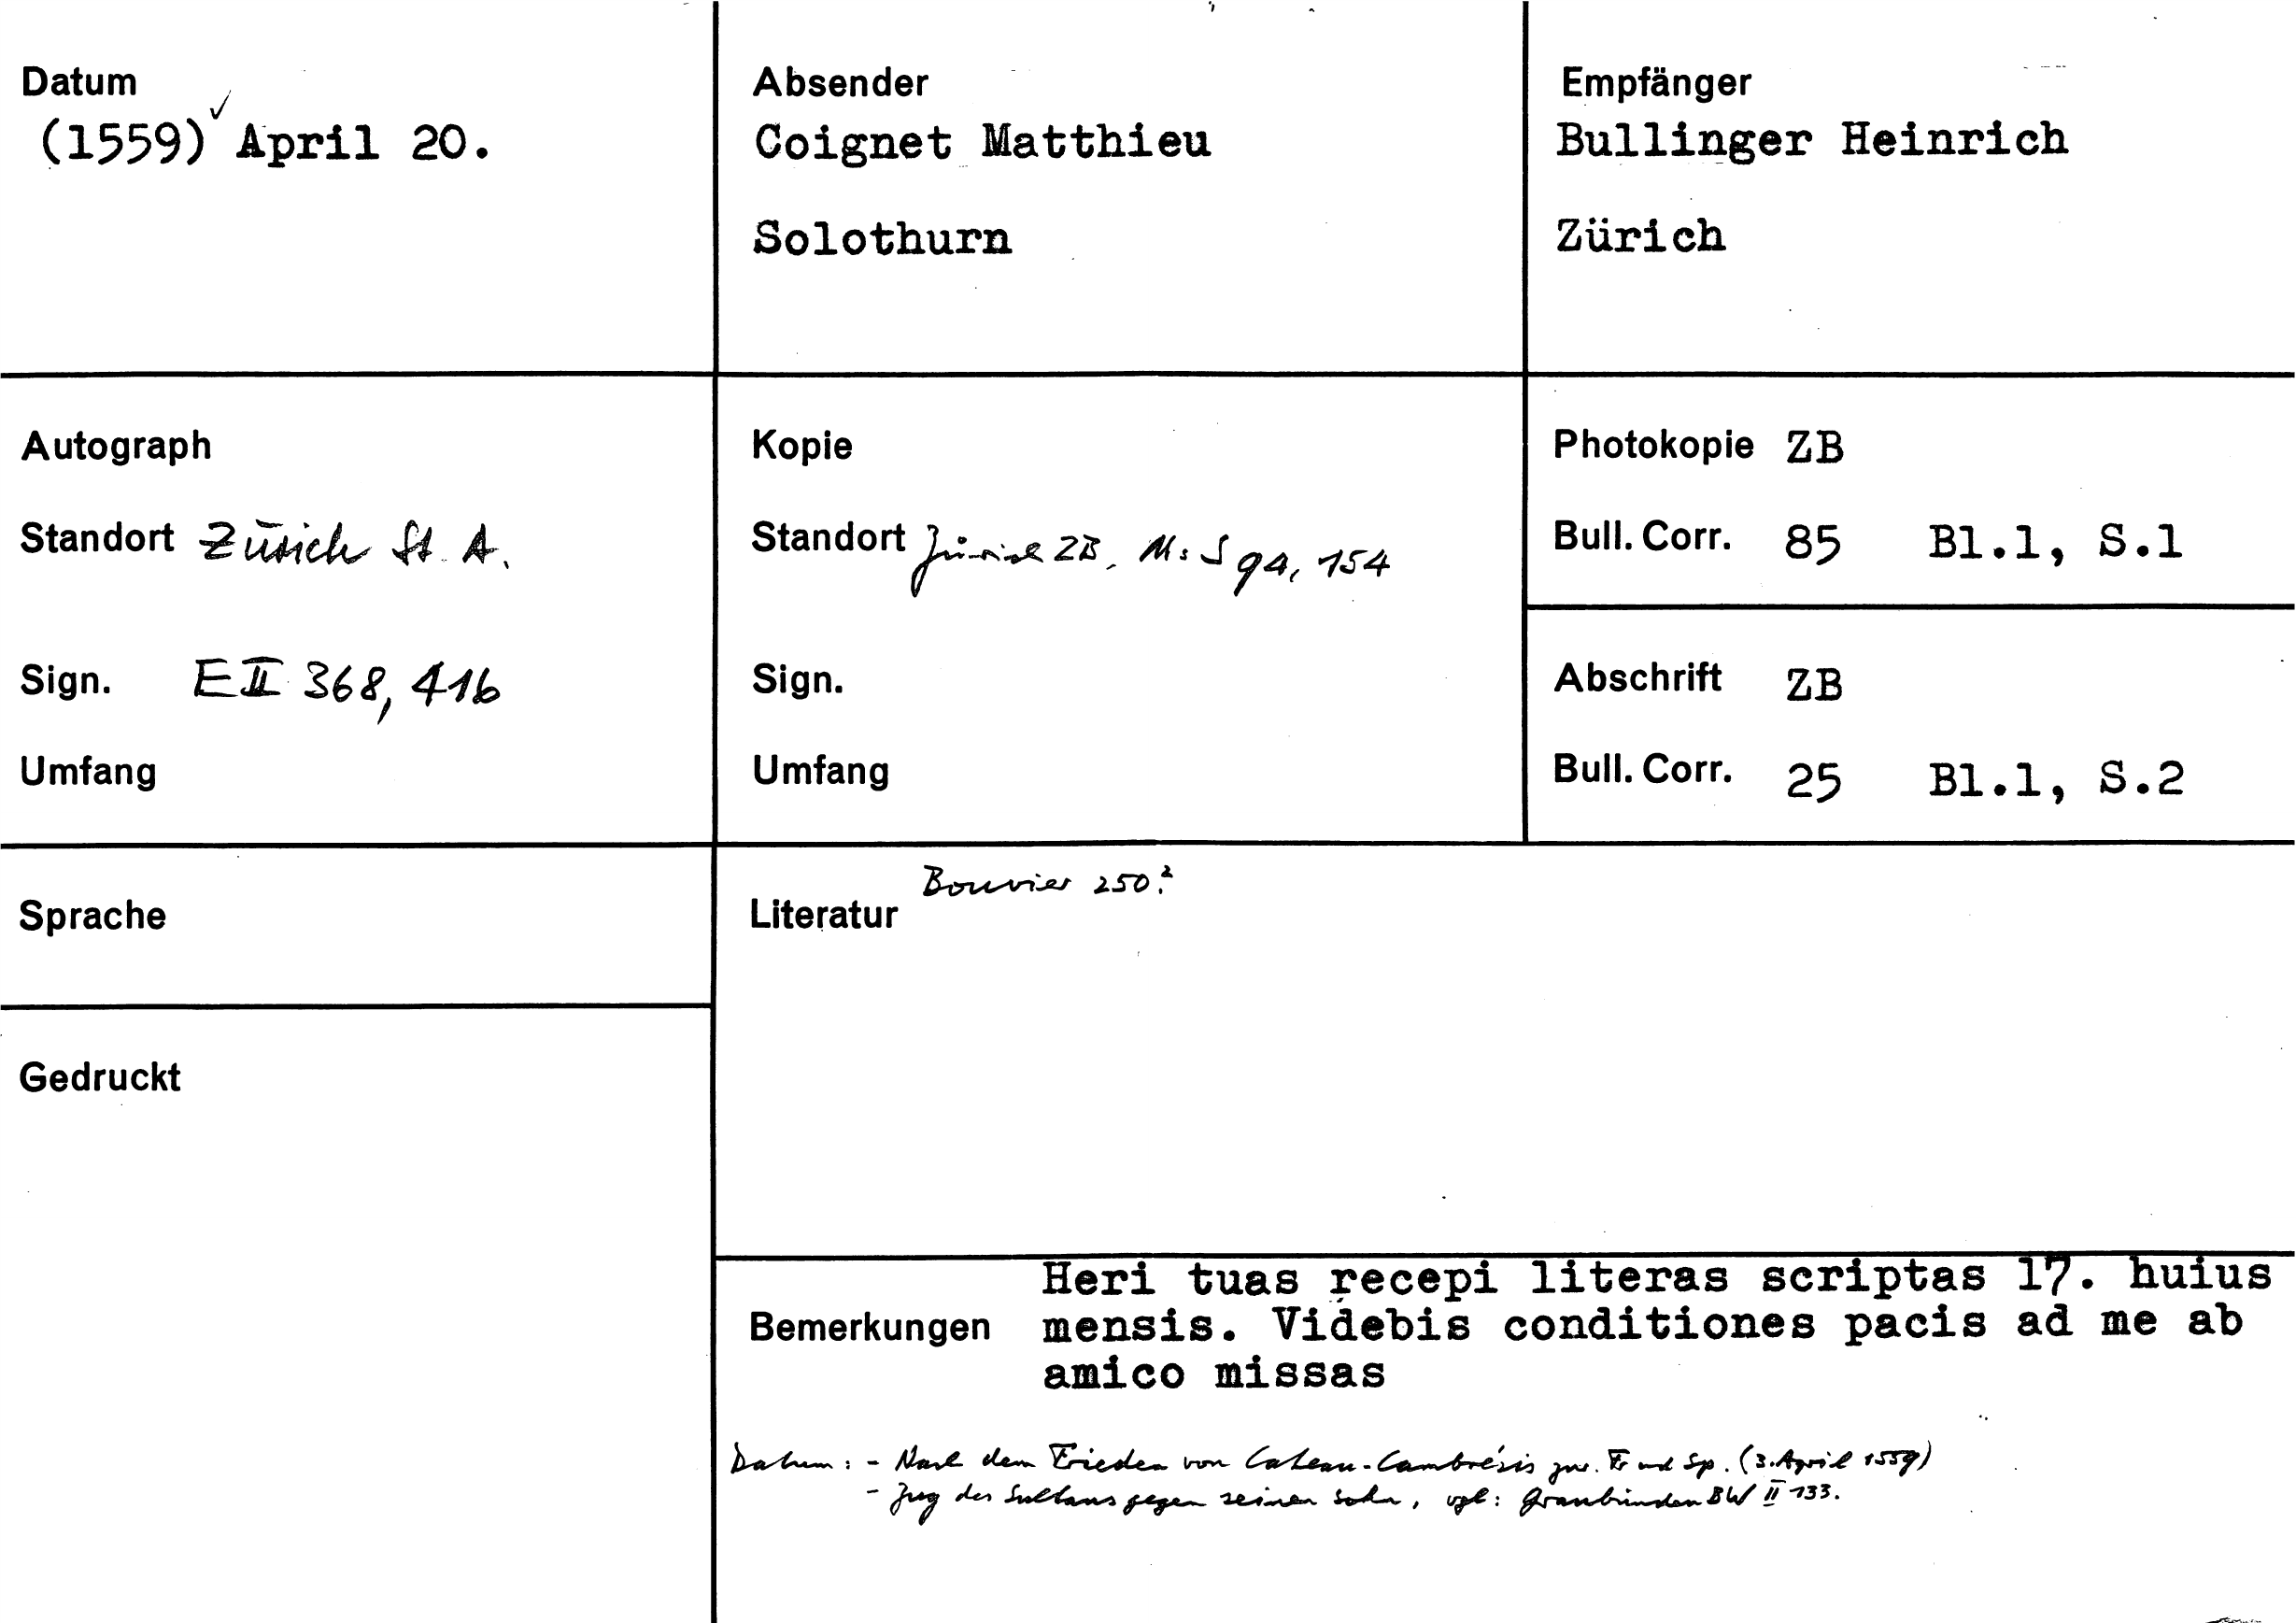 Datum
(1559) ✓ April 20.
Absender
Coignet Matthieu
Solothurn
Empfänger
Bullinger Heinrich
Zürich
Autograph
Standort Zürich St. A.
Sign. E II 368, 416
Umfang
Kopie
Standort Zürich ZB, Ms S 94, 154
Sign.
Umfang
Photokopie ZB
Bull. Corr. 85 Bl.1, S.1
Abschrift ZB
Bull. Corr. 25 Bl.1, S.2
Sprache
Gedruckt
Literatur Bouvier 250.²
Bemerkungen
Heri tuas recepi literas scriptas 17. huius
mensis. Videbis conditiones pacis ad me ab
amico missas
Datum: - Nach dem Frieden von Cateau-Cambrésis zw. Fr und Sp. (3. April 1559)
- Zug des Sultans gegen seinen Sohn, vgl: Graubünden BW II 133.